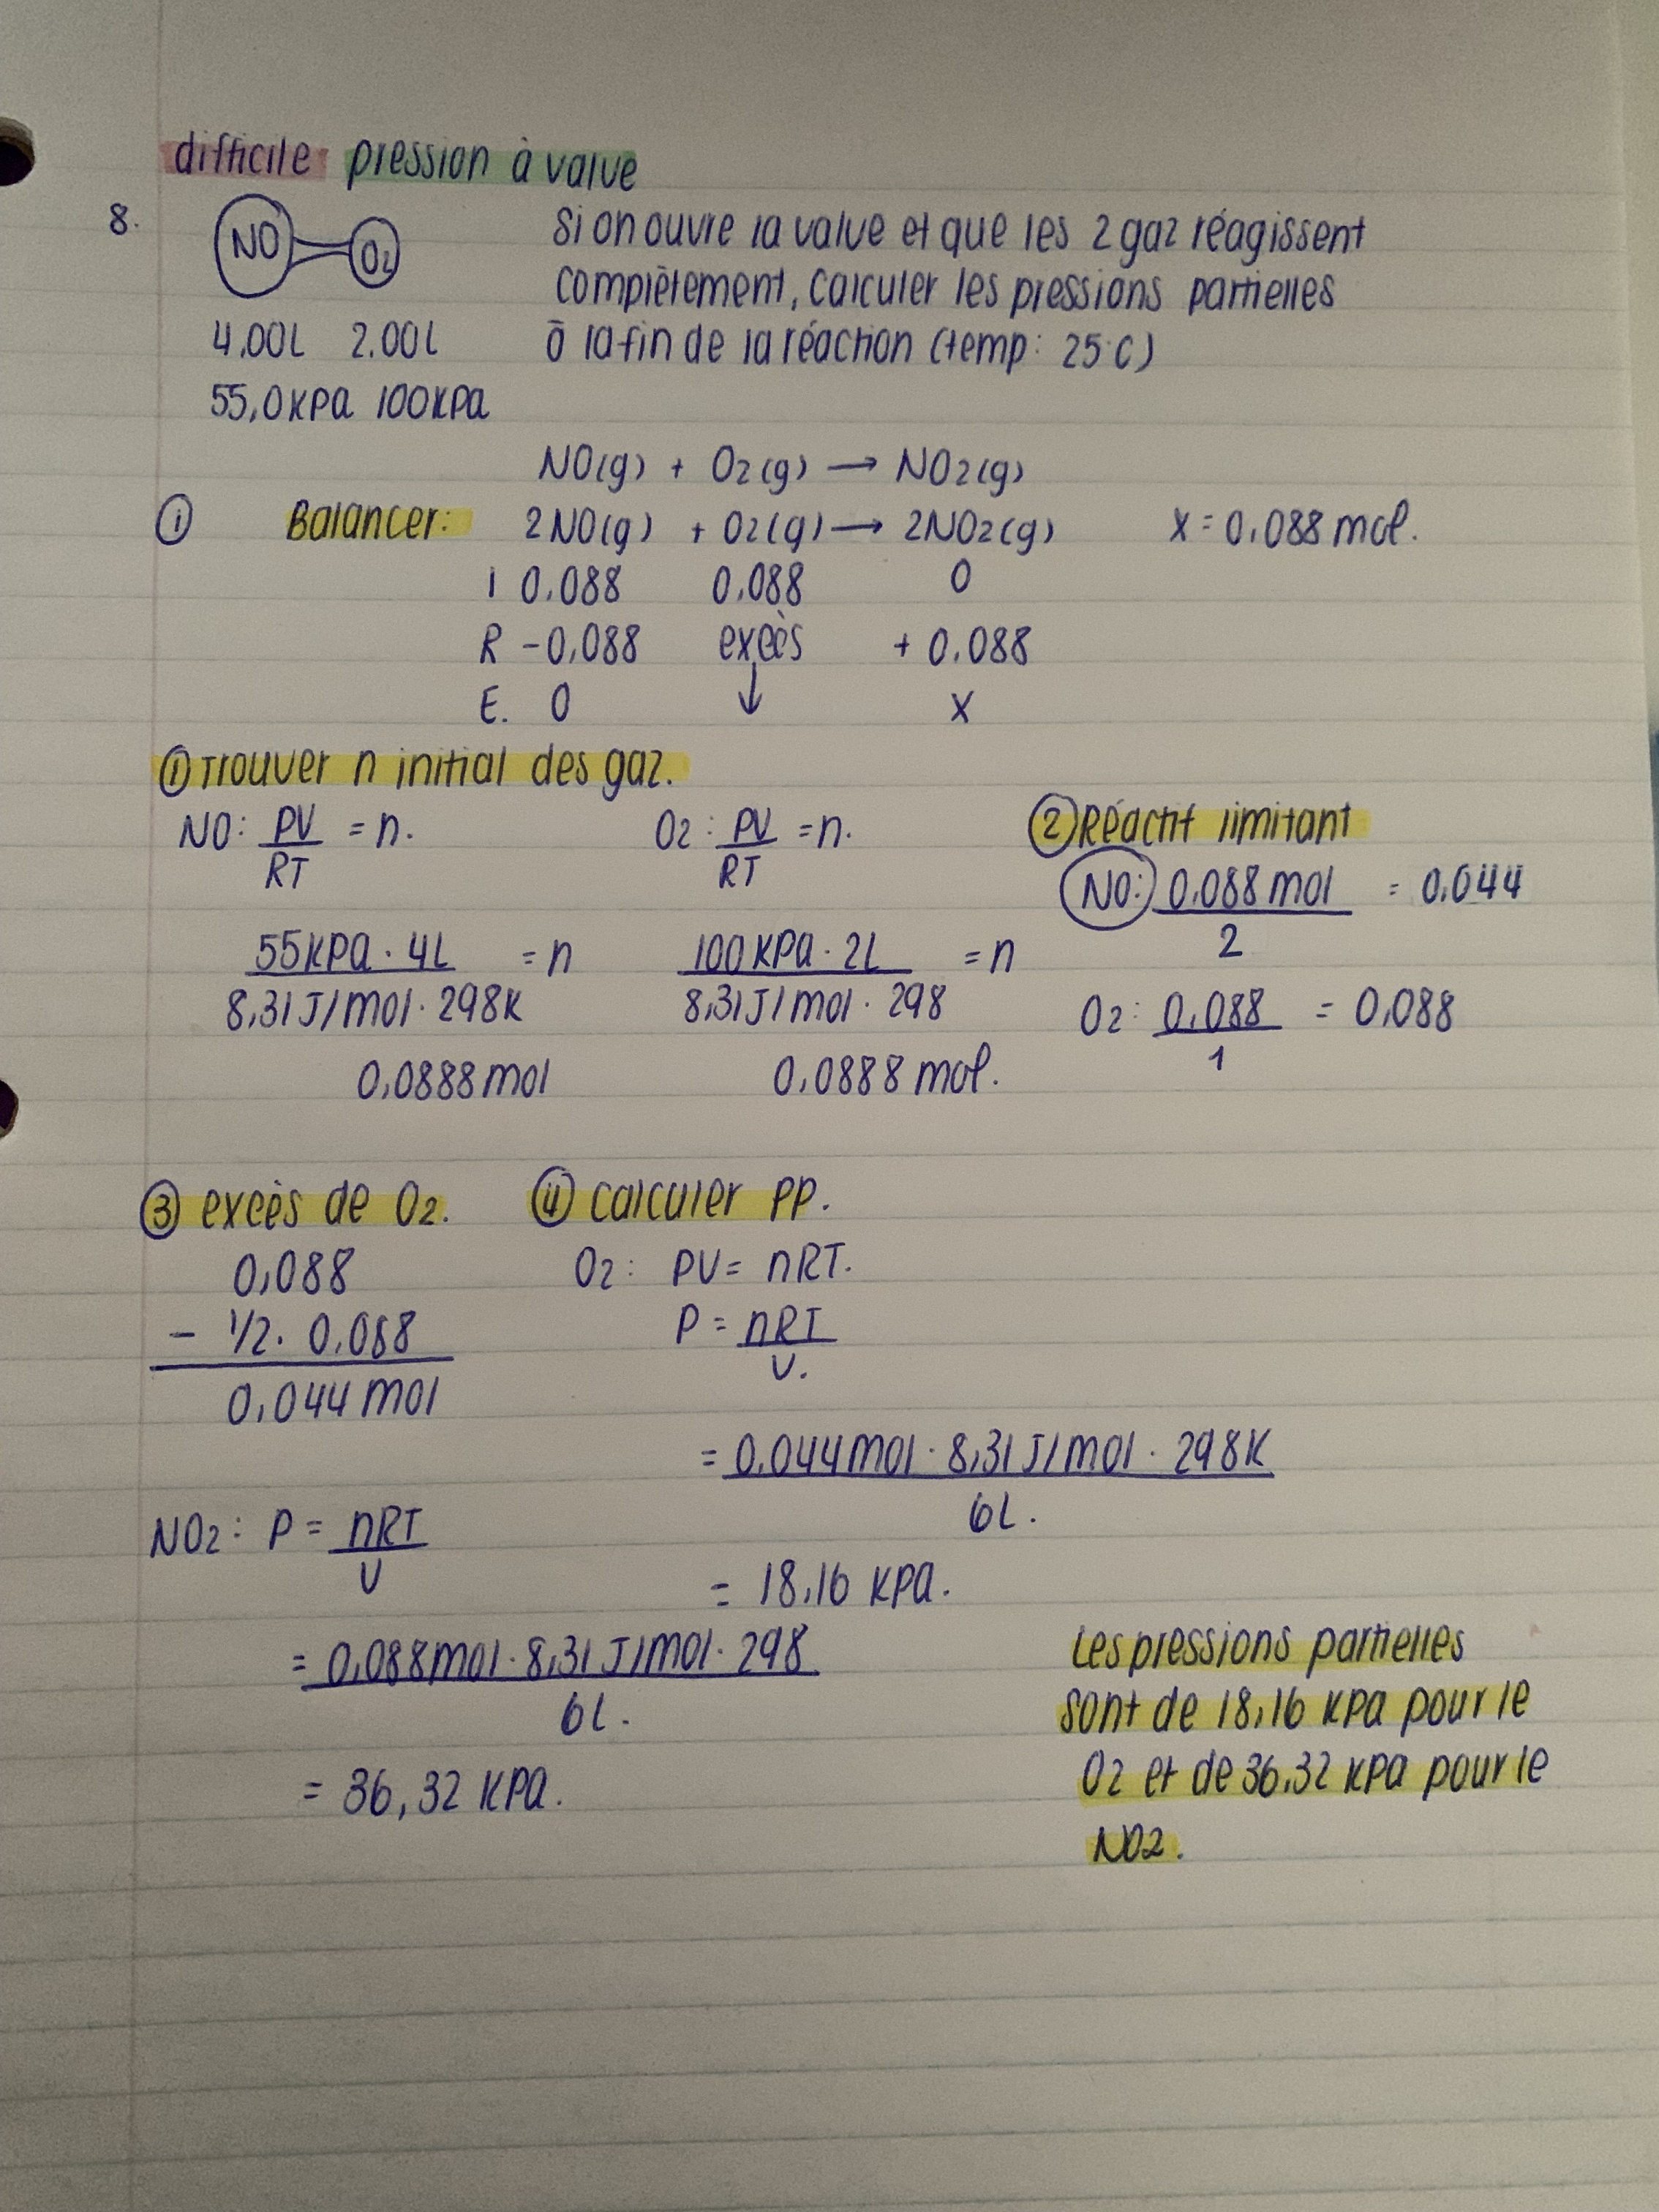 difficile pression à value
8. NO O2 Si on ouvre la value et que les 2 gaz réagissent
complètement, calculer les pressions partielles
4.00L 2.00L à la fin de la réaction (temp: 25°C)
55,0 kPa 100 kPa
NO(g) + O2(g) → NO2(g)
① Balancer: 2NO(g) + O2(g) → 2NO2(g) x = 0,088 mol.
I 0.088 0.088 0
R -0,088 excès + 0.088
E. 0 ↓ x
① Trouver n initial des gaz.
NO: PV/RT = n. O2: PV/RT = n. ② Réactif limitant
NO: 0,088 mol/2 = 0,044
55 kPa · 4L / 8,31 J/mol · 298K = n 100 kPa · 2L / 8,31 J/mol · 298 = n
O2: 0,088/1 = 0,088
0,0888 mol 0,0888 mol.
③ excès de O2. ④ calculer PP.
0,088 O2: PV = nRT.
- 1/2 · 0.088 P = nRT/V.
0,044 mol
= 0,044 mol · 8,31 J/mol · 298K / 6L.
NO2: P = nRT/V
= 18,16 kPa.
= 0,088 mol · 8,31 J/mol · 298 / 6L.
= 36,32 kPa.
Les pressions partielles
sont de 18,16 kPa pour le
O2 et de 36,32 kPa pour le
NO2.